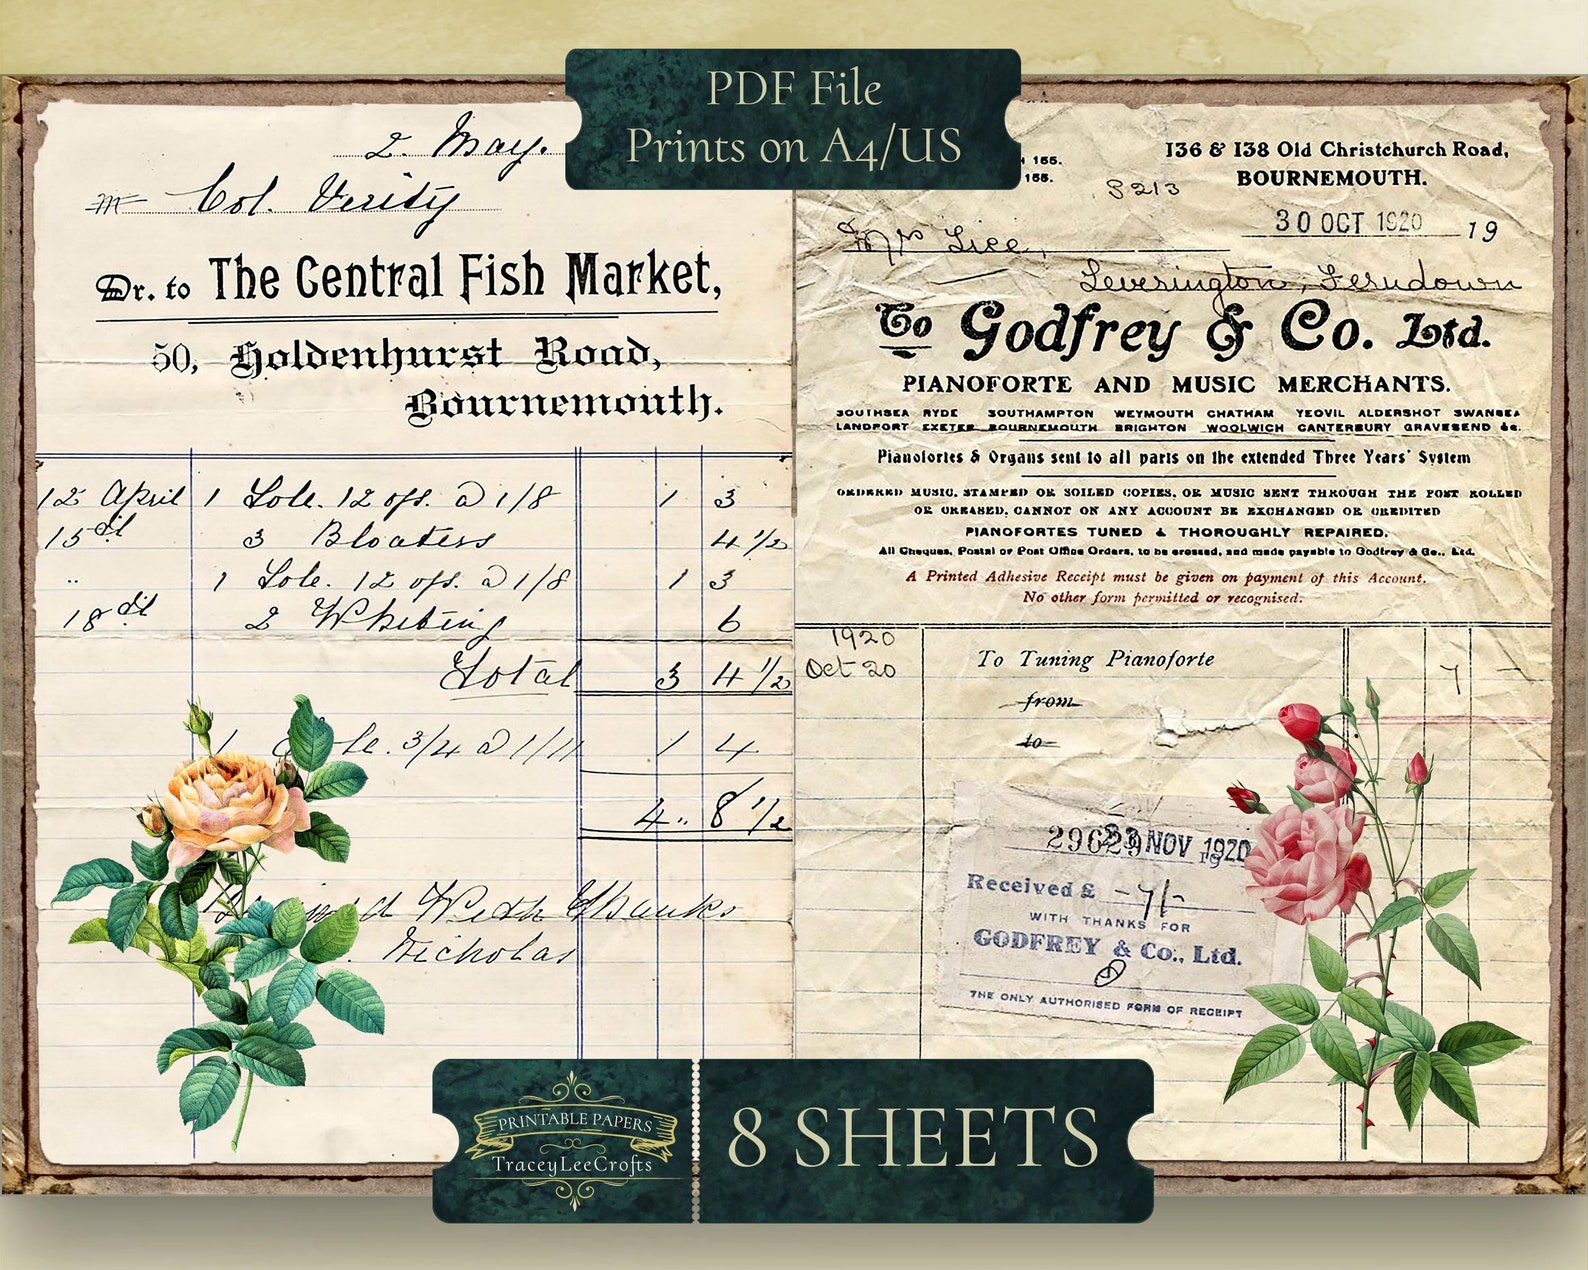 PDF File
Prints on A4/US
2. May.
M Col. Verity
Dr. to The Central Fish Market,
50, Holdenhurst Road,
Bournemouth.
12 April 1 Sole. 12 ozs. @ 1/8 1 3
15 3 Bloaters 4 1/2
" 1 Sole. 12 ozs. @ 1/8 1 3
18 2 Whiting 6
Total 3 4 1/2
1 3/4 @ 1/11 1 4
4 " 8 1/2
With Thanks
Nicholas
155.
155.
136 & 138 Old Christchurch Road,
BOURNEMOUTH.
S213
30 OCT 1920 19
Mrs
Leverington, Ferndown
To Godfrey & Co. Ltd.
PIANOFORTE AND MUSIC MERCHANTS.
SOUTHSEA RYDE SOUTHAMPTON WEYMOUTH CHATHAM YEOVIL ALDERSHOT SWANSEA
LANDPORT EXETER BOURNEMOUTH BRIGHTON WOOLWICH CANTERBURY GRAVESEND &c.
Pianofortes & Organs sent to all parts on the extended Three Years' System
ORDERED MUSIC, STAMPED OR SOILED COPIES, OR MUSIC SENT THROUGH THE POST ROLLED
OR CREASED, CANNOT ON ANY ACCOUNT BE EXCHANGED OR CREDITED
PIANOFORTES TUNED & THOROUGHLY REPAIRED.
All Cheques, Postal or Post Office Orders, to be crossed, and made payable to Godfrey & Co., Ltd.
A Printed Adhesive Receipt must be given on payment of this Account.
No other form permitted or recognised.
1920
Oct 20 To Tuning Pianoforte 7 -
from
to
29629 23 NOV 1920
19
Received £ -7/-
WITH THANKS FOR
GODFREY & Co., Ltd.
THE ONLY AUTHORISED FORM OF RECEIPT
PRINTABLE PAPERS
TraceyLeeCrofts
8 SHEETS